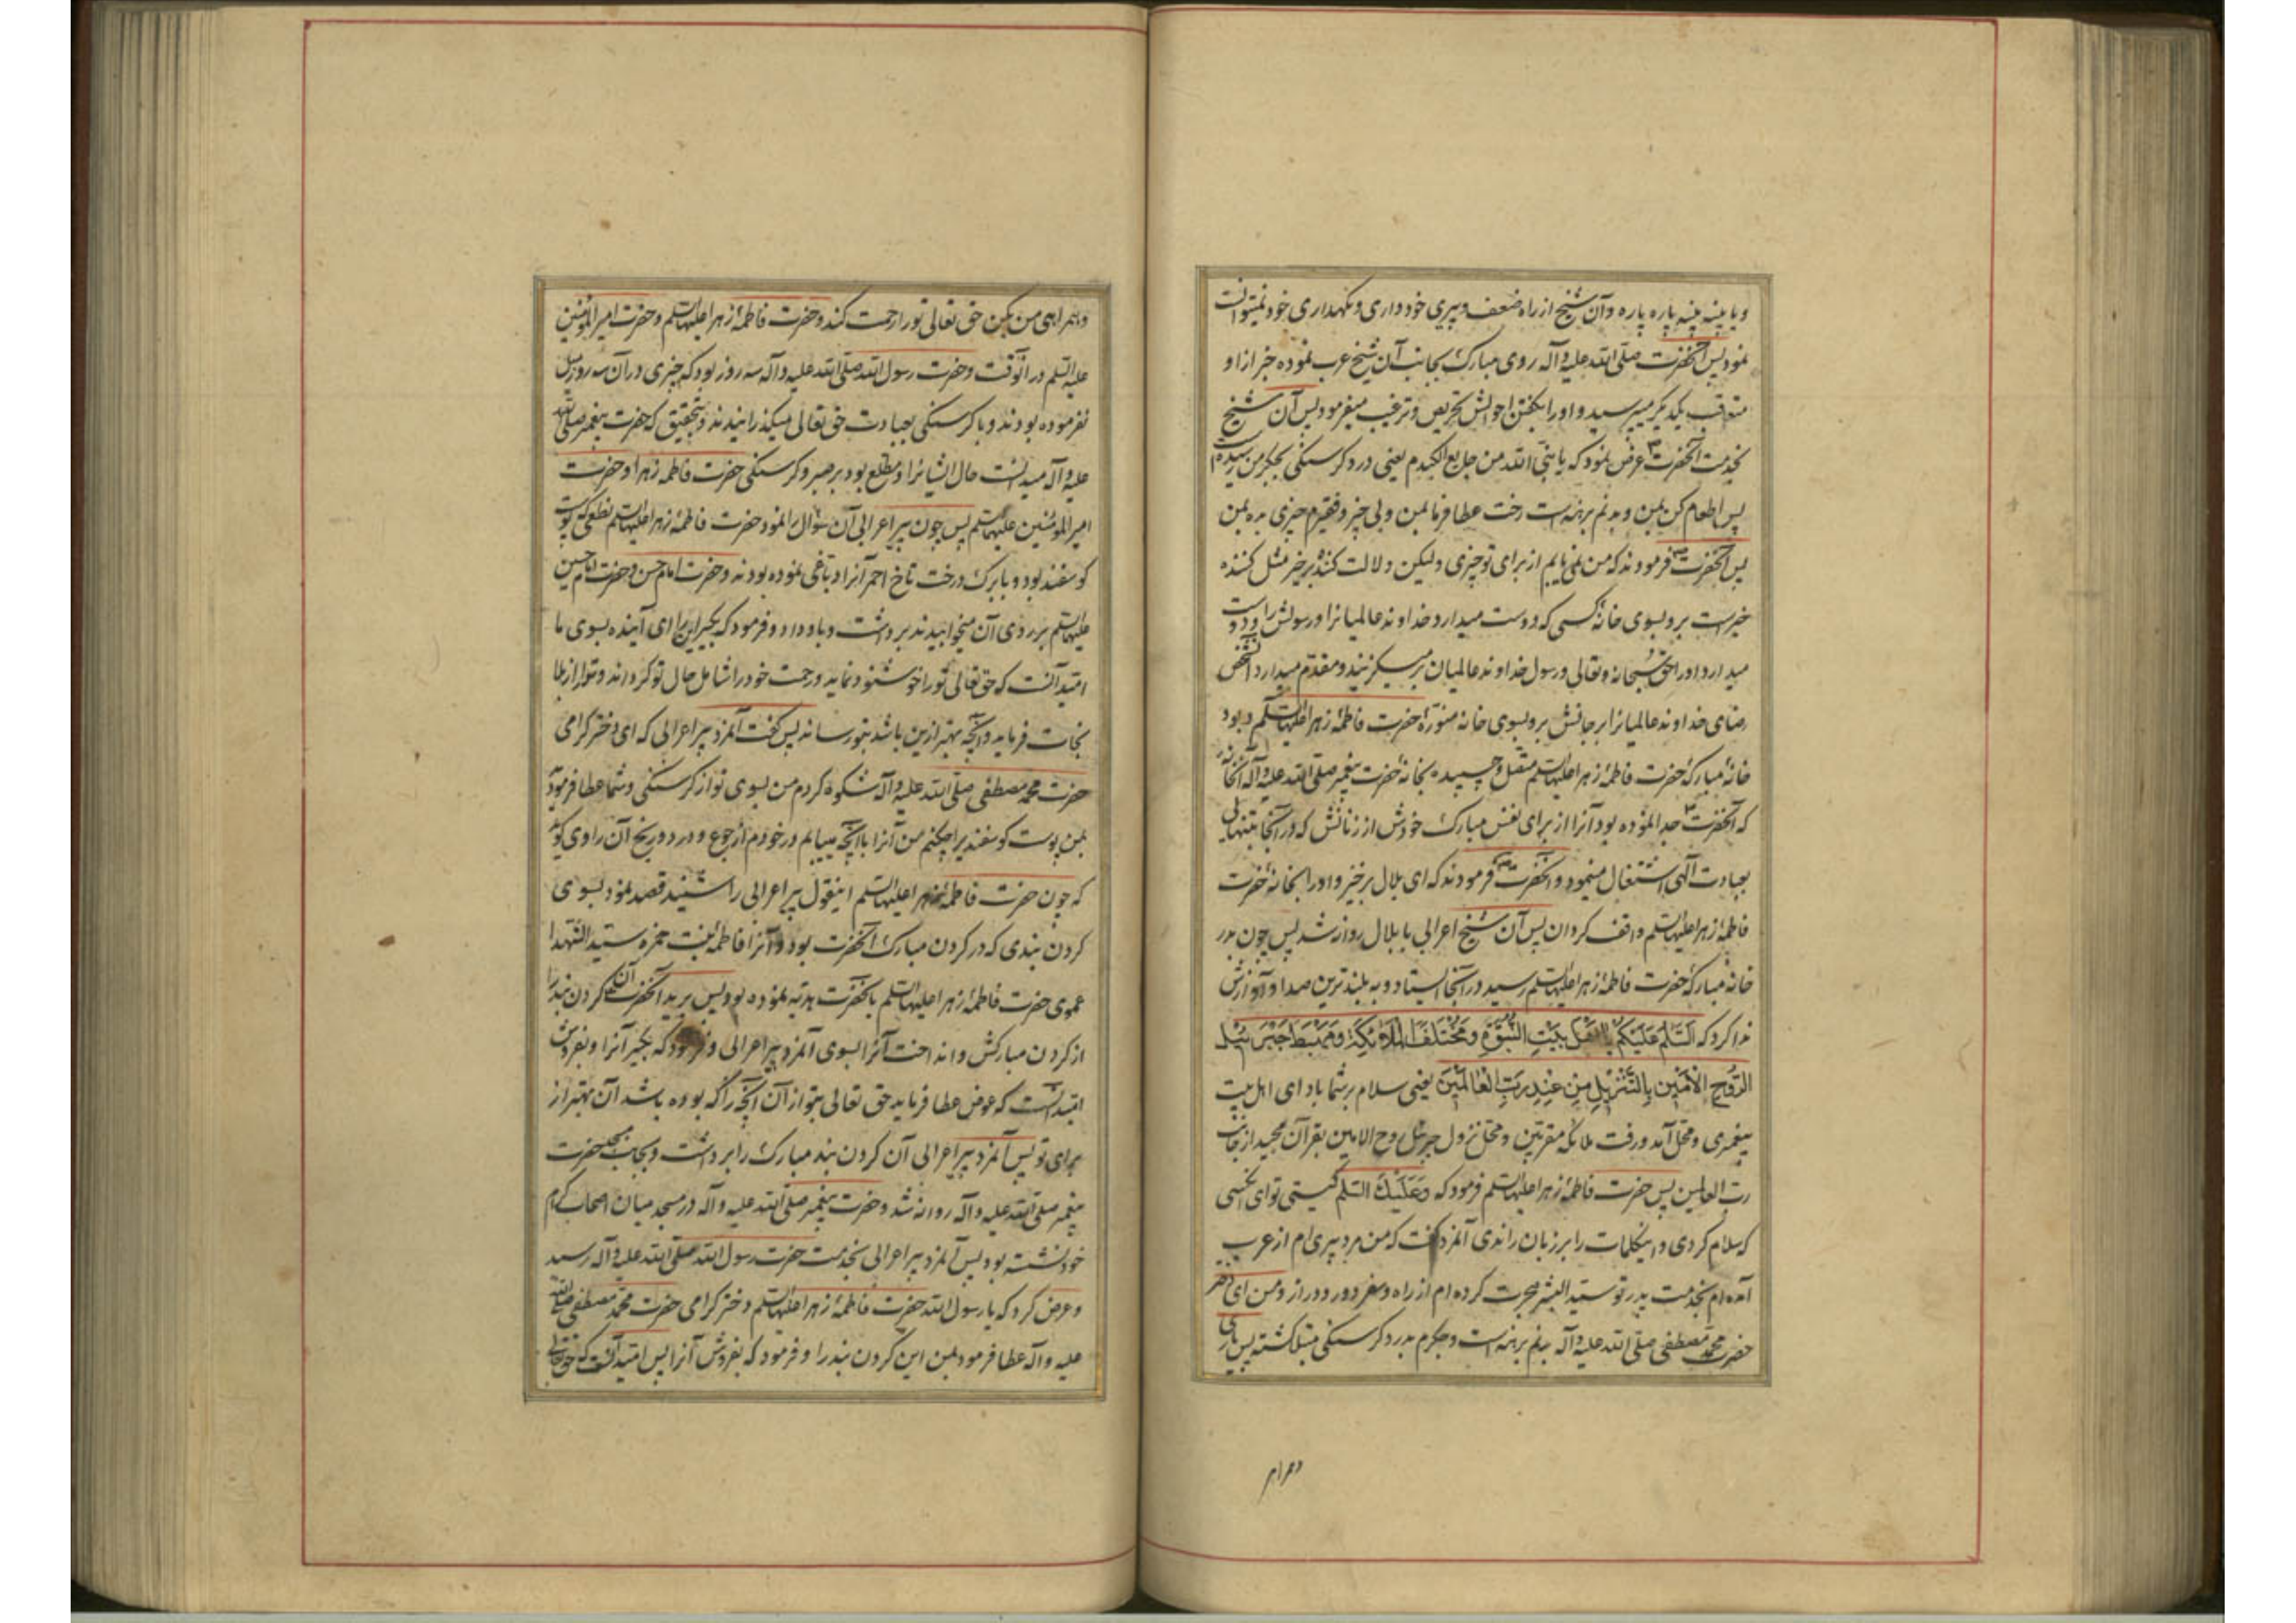 و با پینه پینه پاره پاره و آن شیخ از راه ضعف و پیری خودداری و نکهداری خود نمیتوانست
نمود پس آنحضرت صلی الله علیه و آله روی مبارک بجانب آن شیخ عرب نموده خبر از او
متعاقب یکدیکر میپرسید و او را بکفتن احوالش تحریص و ترغیب میفرمود پس آن شیخ
بخدمت آنحضرت عرض نمود که یا نبی الله من جایع الکبدم یعنی درد کرسنکی بجکر من رسیده است
پس اطعام کن بمن و بدنم برهنه است رخت عطا فرما بمن و بی چیز و فقیرم چیزی بده بمن
پس آنحضرت فرمودند که من نمی یابم از برای تو چیزی ولیکن دلالت کننده بر خیر مثل کننده
خیر است برو بسوی خانه کسی که دوست میدارد خداوند عالمیانرا و رسولش را و دوست
میدارد او را حق سبحانه و تعالی و رسول خداوند عالمیان بر میکزیند و مقدم میدارد آنشخص
رضای خداوند عالمیانرا بر جانش برو بسوی خانه منوره حضرت فاطمه زهرا علیها السلم و بود
خانه مبارکه حضرت فاطمه زهرا علیها السلم متصل و چسبیده بخانه حضرت پیغمبر صلی الله علیه و آله آنخانه
که آنحضرت جدا نموده بود آنرا از برای نفس مبارک خودش از زنانش که در آنجا بتنهائی
بعبادت الهی اشتغال مینمود و آنحضرت فرمودند که ای بلال برخیز و او را بخانه حضرت
فاطمه زهرا علیها السلم واقف کردان پس آن شیخ اعرابی با بلال روانه شد پس چون بدر
خانه مبارکه حضرت فاطمه زهرا علیها السلم رسید در آنجا ایستاد و به بلندترین صدا و آوازش
ندا کرد که السَّلَمُ عَلَیکُم یا اَهْلَ بَیْتِ النُّبُوَّةِ وَ مُخْتَلَفَ المَلائِکَةِ وَ مَهْبَطَ جَبْرَئیلَ
الرُّوحِ الْاَمینِ بِالتَّنْزیلِ مِنْ عِنْدِ رَبِّ الْعالَمینَ یعنی سلام بر شما باد ای اهل بیت
پیغمبری و محل آمد و رفت ملائکه مقربین و محل نزول جبرئیل روح الامین بقرآن مجید از جانب
رب العالمین پس حضرت فاطمه زهرا علیها السلم فرمود که وَ عَلَیْکَ السَّلَم کیستی تو ای کسی
که سلام کردی و اینکلمات را بر زبان راندی آنمرد کفت که من مرد پیری ام از عرب
آمده ام بخدمت پدر تو سید البشر هجرت کرده ام از راه و سفر دور و دراز و من ای دختر
حضرت محمد مصطفی صلی الله علیه و آله بدنم برهنه است و جکرم بدرد کرسنکی مبتلا کشته پس یاری
و همراهی
و همراهی من بکن حق تعالی تو را رحمت کند و حضرت فاطمه زهرا علیها السلم و حضرت امیر المؤمنین
علیه السلم در آنوقت و حضرت رسول الله صلی الله علیه و آله سه روز بود که چیزی در آن سه روز میل
نفرموده بودند و با کرسنکی بعبادت حق تعالی میکذرانیدند و بتحقیق که حضرت پیغمبر صلی الله
علیه و آله میدانست حال ایشانرا و مطلع بود بر صبر و کرسنکی حضرت فاطمه زهرا و حضرت
امیر المؤمنین علیهما السلم پس چون پیر اعرابی آن سؤال را نمود حضرت فاطمه زهرا علیها السلم نطعی که پوست
کوسفند بود و با برک درخت تاخ احمر آنرا دباغی نموده بودند و حضرت امام حسن و حضرت امام حسین
علیهما السلم بر روی آن میخوابیدند برداشت و باو داد و فرمود که بکیر این را ای آینده بسوی ما
امید آنست که حق تعالی تو را خوشنود نماید و رحمت خود را شامل حال تو کرداند و تو را از بلا
نجات فرماید و آنچه بهتر ازین باشد بتو رساند پس کفت آنمرد پیر اعرابی که ای دختر کرامی
حضرت محمد مصطفی صلی الله علیه و آله شکوه کردم من بسوی تو از کرسنکی و شما عطا فرمودید
بمن پوست کوسفند پس چکنم من آنرا با آنچه مییابم در خودم از جوع و درد و رنج آن راوی کوید
که چون حضرت فاطمه زهرا علیها السلم اینقول پیر اعرابی را شنید قصد نمود بسوی
کردن بندی که در کردن مبارک آنحضرت بود و آنرا فاطمه بنت حمزه سید الشهدا
عموی حضرت فاطمه زهرا علیها السلم بآنحضرت هدیه نموده بود پس برید آنحضرت آن کردن بند را
از کردن مبارکش و انداخت آنرا بسوی آنمرد پیر اعرابی و فرمود که بکیر آنرا و بفروش
امید است که عوض عطا فرماید حق تعالی بتو از آن آنچه را که بوده باشد آن بهتر از
برای تو پس آنمرد پیر اعرابی آن کردن بند مبارک را برداشت و بجانب مسجد حضرت
پیغمبر صلی الله علیه و آله روانه شد و حضرت پیغمبر صلی الله علیه و آله در مسجد میان اصحاب کرام
خود نشسته بود پس آنمرد پیر اعرابی بخدمت حضرت رسول الله صلی الله علیه و آله رسید
و عرض کرد که یا رسول الله حضرت فاطمه زهرا علیها السلم دختر کرامی حضرت محمد مصطفی صلی الله
علیه و آله عطا فرمود بمن این کردن بند را و فرمود که بفروش آنرا پس امید آنست که حق تعالی